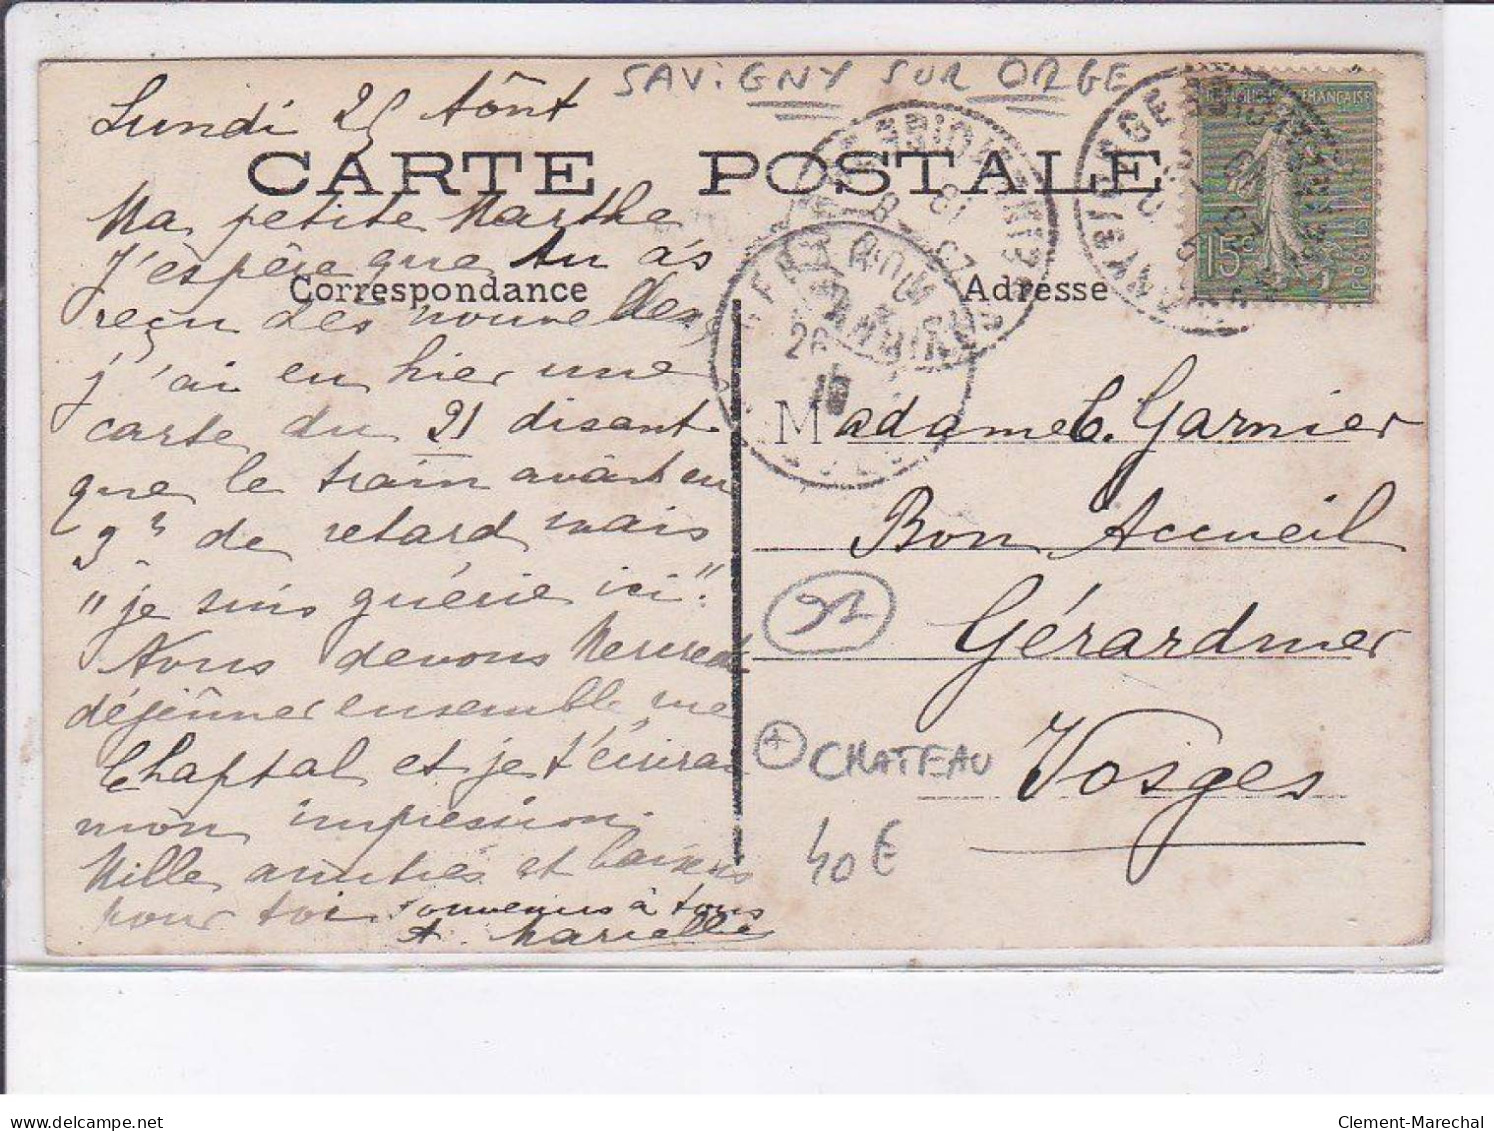 SAVIGNY SUR ORGE
Lundi 25 Aôut
CARTE POSTALE
Ma petite Marthe
J'espère que tu as
Correspondance
Adresse
reçu des nouvelles
j'ai eu hier une
carte du 21 disant
que le train avait eu
3h de retard mais
"je suis guérie ici".
Nous devons Mercredi
déjeûner ensemble rue
Chaptal et je t'écrirai
mon impression.
Mille amitiés et baisers
pour toi souvenirs à tous
A. Marielle
REPUBLIQUE FRANÇAISE
15c
POSTES
GERARDMER
26
Madame C. Garnier
Bon Accueil
Gérardmer
Vosges
91
+ CHATEAU
40€
Clement-Marechal